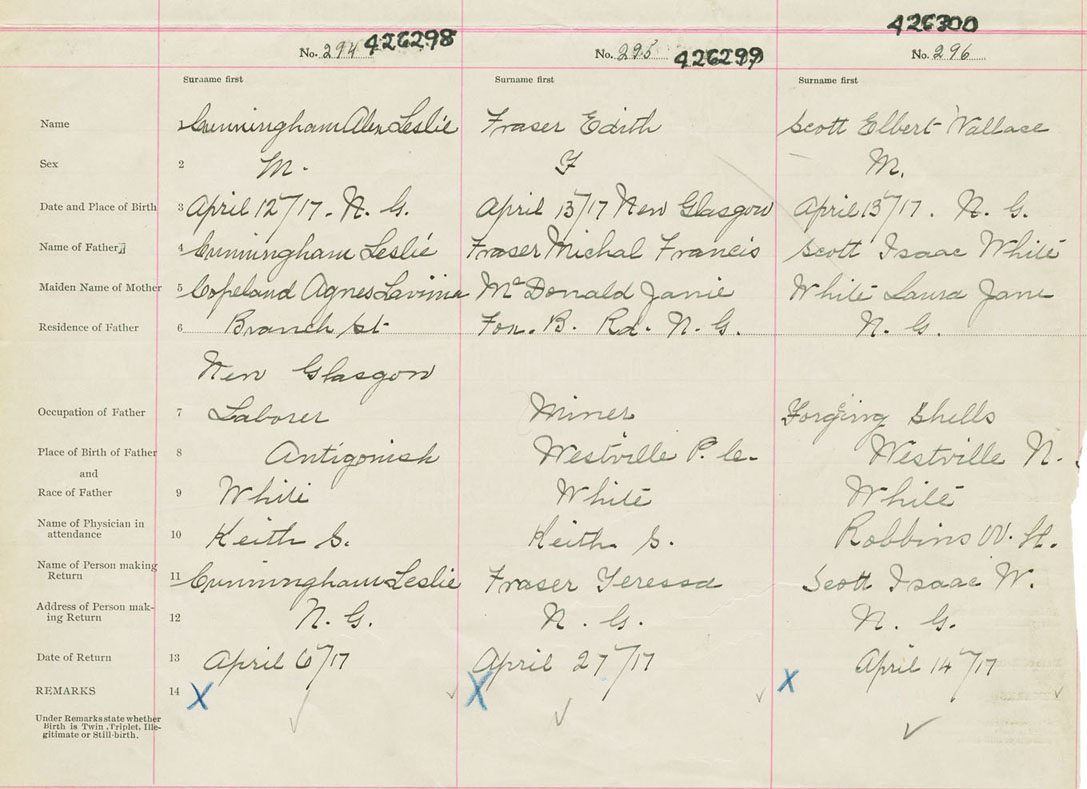 426300
No. 294 426298 No. 295 426299 No. 296
Surname first Surname first Surname first
Name 1 Cunningham Alex Leslie Fraser Edith Scott Elbert Wallace
Sex 2 M. F M.
Date and Place of Birth 3 April 12/17. N. G. April 13/17 New Glasgow April 13/17. N. G.
Name of Father 4 Cunningham Leslie Fraser Michal Francis Scott Isaac White
Maiden Name of Mother 5 Copeland Agnes Lavinia McDonald Janie White Laura Jane
Residence of Father 6 Branch St Fox. B. Rd. N. G. N. G.
New Glasgow
Occupation of Father 7 Laborer Miner Forging Shells
Place of Birth of Father 8 Antigonish Westville P. Co. Westville N.
and
Race of Father 9 White White White
Name of Physician in
attendance 10 Keith S. Keith S. Robbins W. H.
Name of Person making
Return 11 Cunningham Leslie Fraser Teressa Scott Isaac W.
Address of Person mak-
ing Return 12 N. G. N. G. N. G.
Date of Return 13 April 6/17 April 27/17 April 14/17
REMARKS 14 X X X
Under Remarks state whether
Birth is Twin, Triplet, Ille-
gitimate or Still-birth.